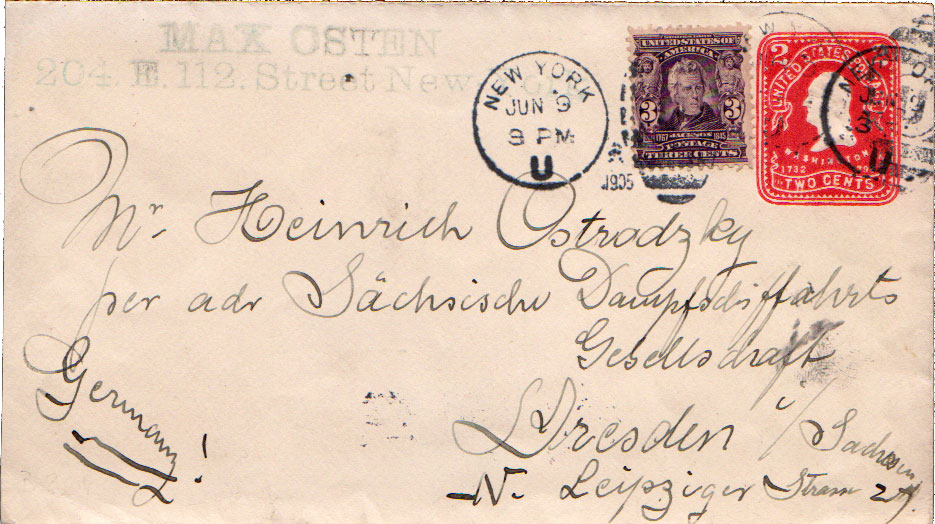 MAX OSTEN
204 E. 112. Street New
NEW YORK
JUN 9
9 PM
U
1905
UNITED STATES OF
AMERICA
3 3
1767 JACKSON 1845
POSTAGE
THREE CENTS
2
UNITED STATES POSTAGE
WASHINGTON
1732
TWO CENTS
U
Mr. Heinrich Ostrodzky
per adr Sächsische Dampfschiffahrts
Gesellschaft
Germany!
Dresden i/Sachsen
N. Leipziger Strasse